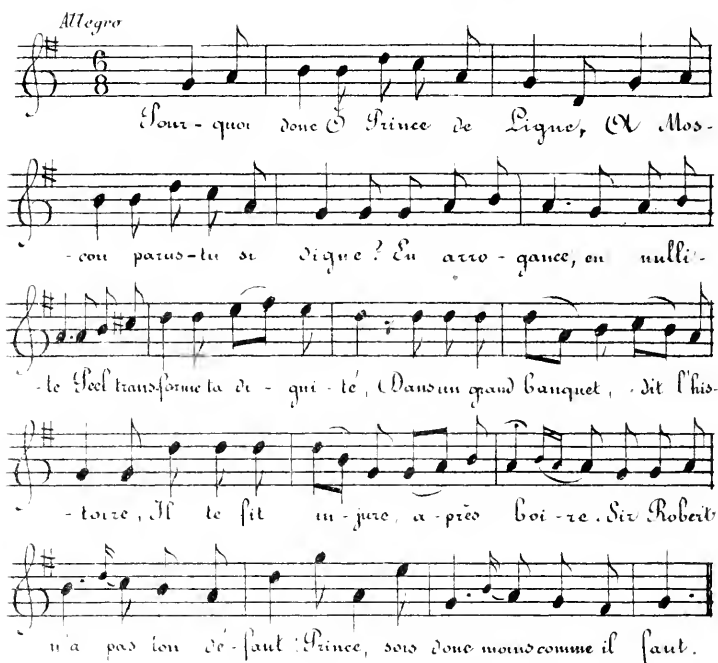 Allegro
6
8
Pour-quoi donc Ô Prince de Ligne, A Mos-
-cou parus-tu si digne ? En arro-gance, en nulli-
-té Peel transforme ta di-gni-té, Dans un grand banquet, -dit l'his-
-toire, Il te fit in-jure, a-près boi-re. Sir Robert
n'a pas ton dé-faut : Prince, sois donc moins comme il faut.